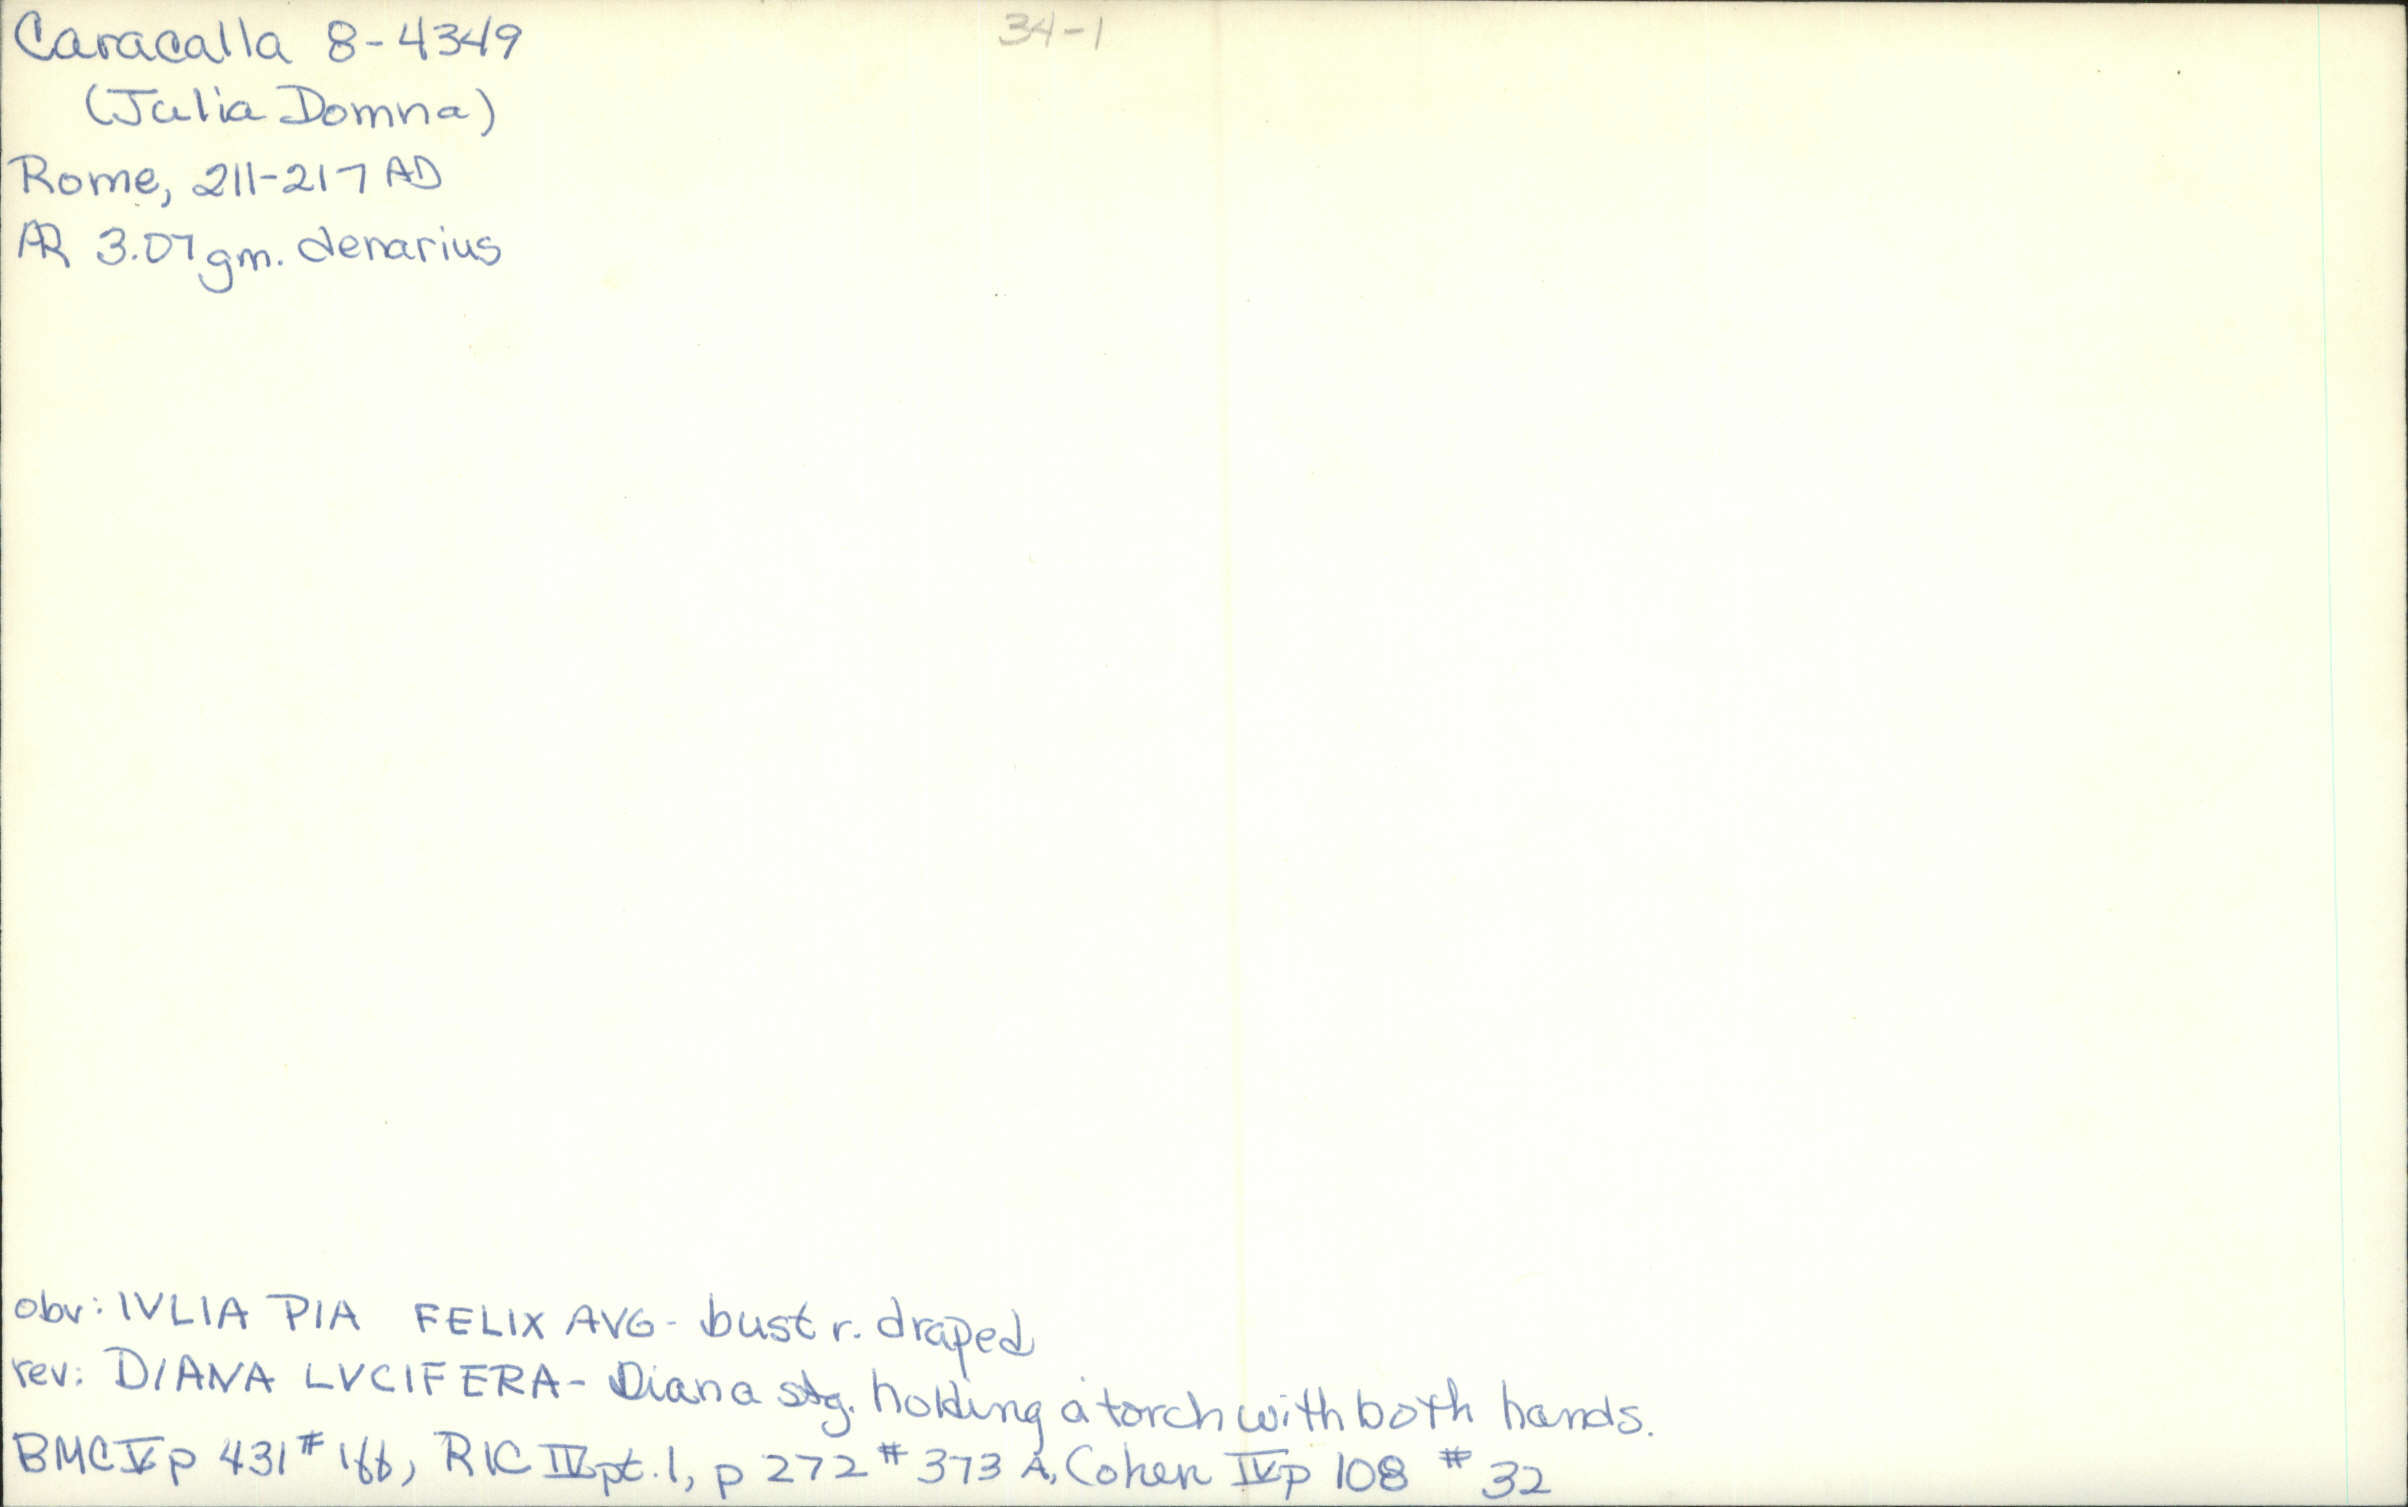 Caracalla 8-4349
34-1
(Julia Domna)
Rome, 211-217 AD
AR 3.07 gm. denarius
obv: IVLIA PIA FELIX AVG - bust r. draped
rev: DIANA LVCIFERA - Diana stg. holding a torch with both hands.
BMC V p 431 # RIC IV pt. 1, p 272 # 373 A, Cohen IV p 108 # 32